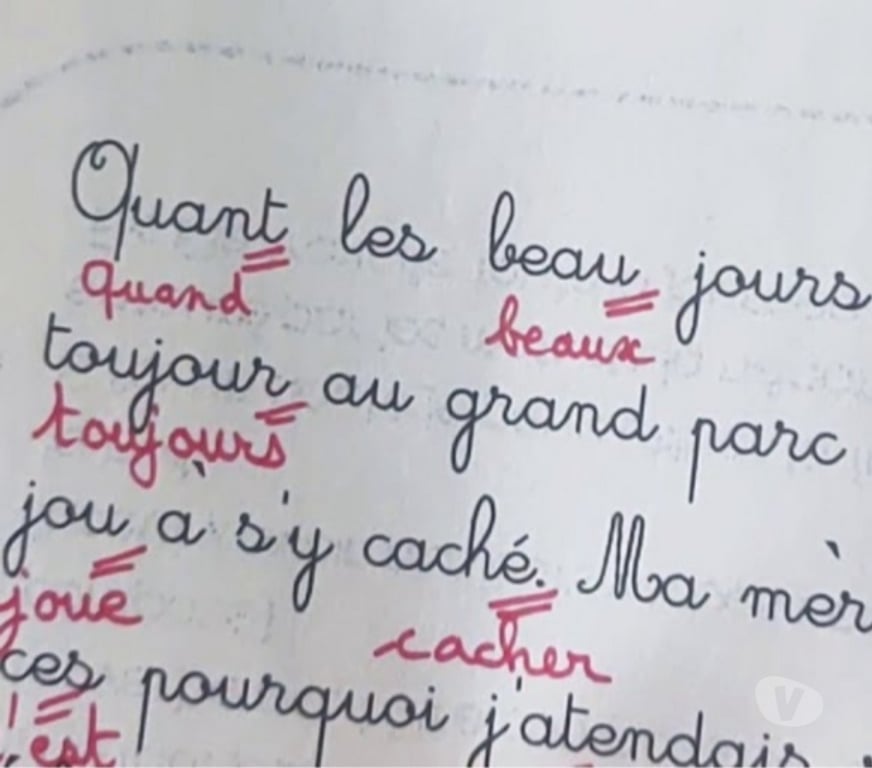 Quant les beau jours
quand beaux
toujour au grand parc
toujours
jou à s'y caché. Ma mèr
joue cacher
ces pourquoi j'atendais
est
V